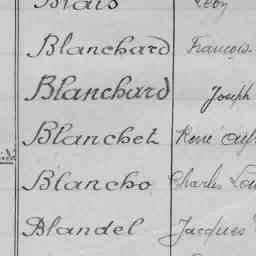 Blais Léon
Blanchard François
Blanchard Joseph
Blanchet René
Blancho Charles
Blandel Jacques